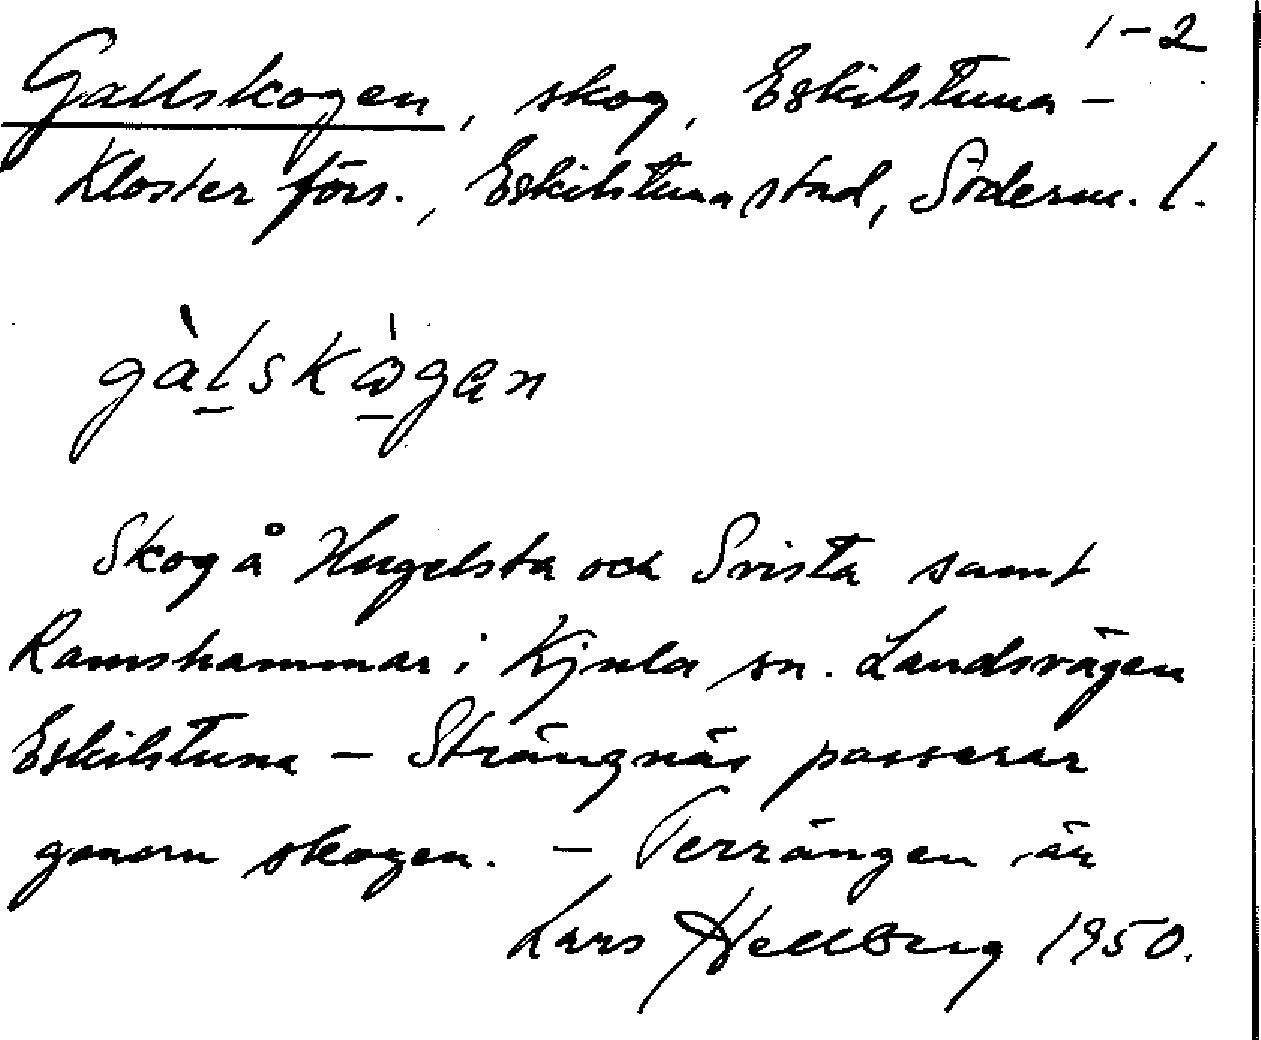 1-2
Gallskogen, skog, Eskilstuna-
Kloster förs., Eskilstuna stad, Söderm. l.
gàlskògan
Skog å Hugelsta och Svista samt
Ramshammar i Kjula sn. Landsvägen
Eskilstuna - Strängnäs passerar
genom skogen. - Terrängen är
Lars Hellberg 1950.